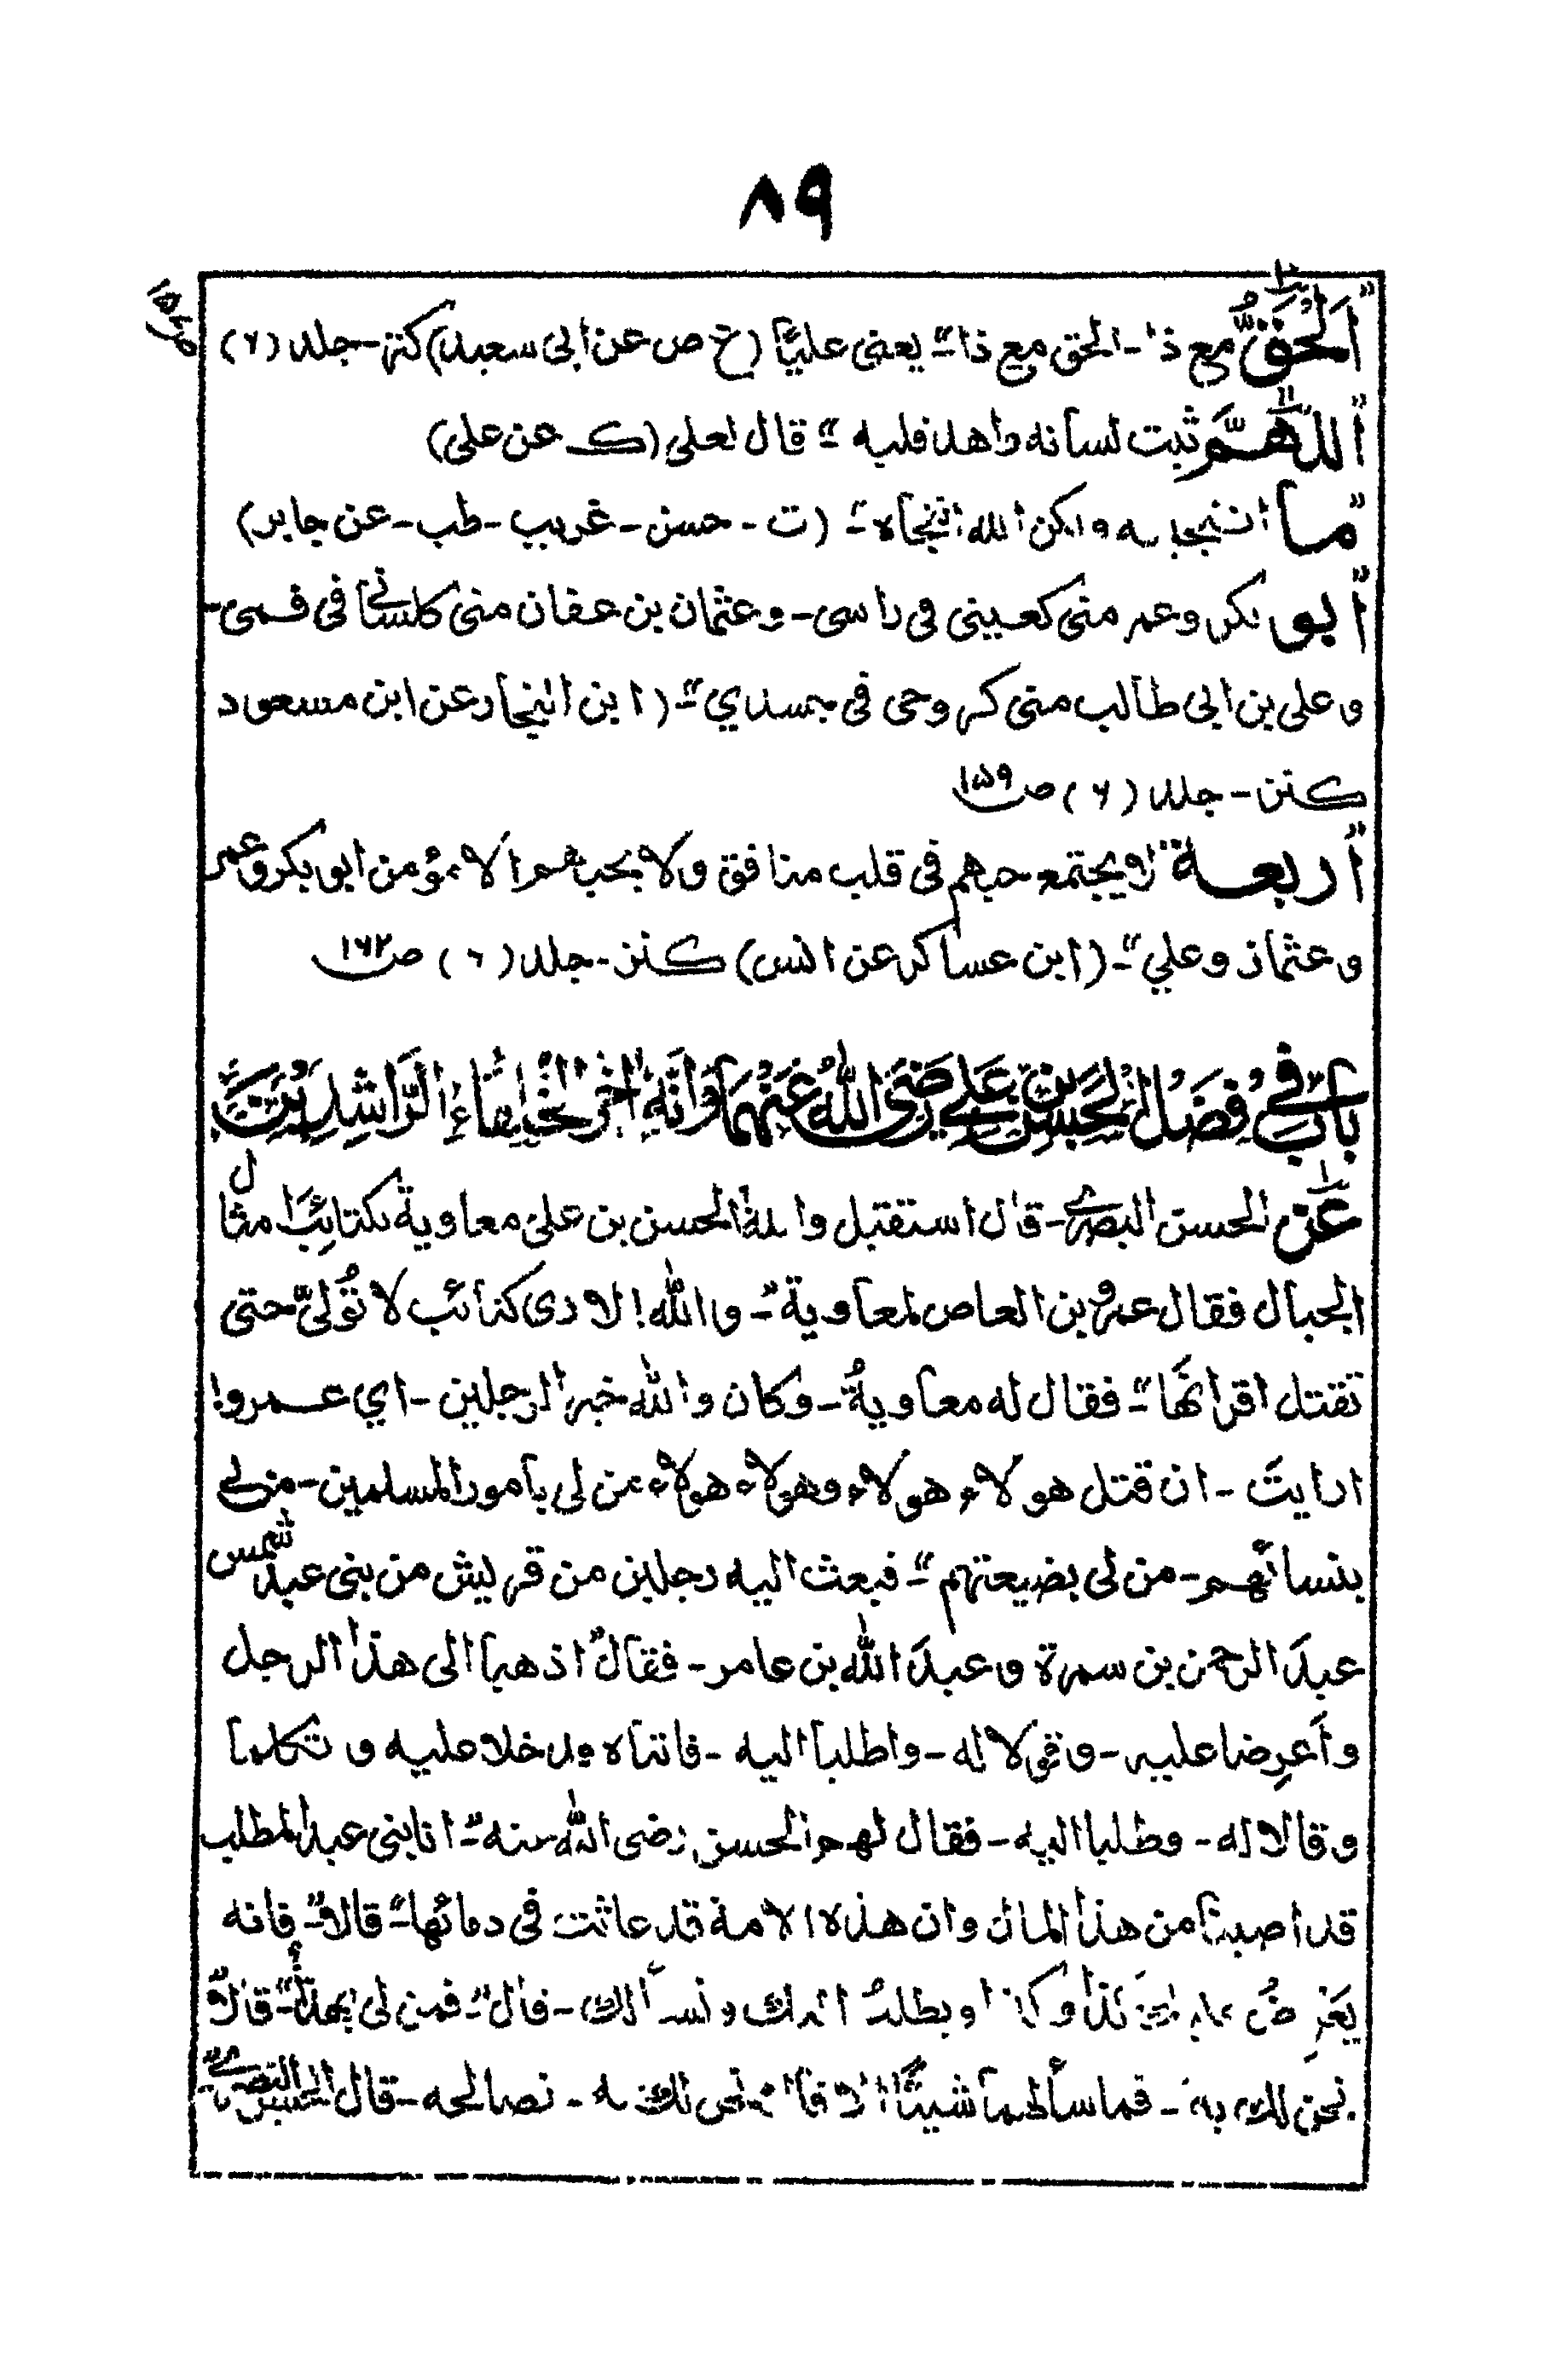 ٨٩
"اَلْحَقُّ مع ذا - الحق مع ذا" - يعنى عليًّا (ع ص عن ابى سعيد) كنز - جلد (٦) ص١٥٧
"اللّٰهمَّ ثبت لسانه واهد قلبه" - قال لعلى (ك عن على)
"ما انتجيته ولكن الله انتجاه" - (ت - حسن - غريب - طب - عن جابر)
"ابو بكر وعمر منى كعينى فى راسى - وعثمان بن عفان منى كلسانى فى فمى -
وعلى بن ابى طالب منى كروحى فى جسدي" - (ابن النجار عن ابن مسعود
كنز - جلد (٦) ص١٥٩
"اربعة لا يجتمع حبهم فى قلب منافق ولا يحبهم الا مؤمن ابو بكر وعمر
وعثمان وعلي" - (ابن عساكر عن انس) كنز - جلد (٦) ص١٦٢
بَابٌ فِي فَضْلِ الْحَسَنِ بْنِ عَلِيٍّ رَضِيَ اللّٰهُ عَنْهُمَا وَاَنَّهٗ اٰخِرُ الْخُلَفَاءِ الرَّاشِدِيْنَ
١ عَن الحسن البصرى - قال استقبل والله الحسن بن على معاوية بكتائِبَ امثال
الجبال فقال عمرو بن العاص لمعاوية" - والله! لارى كتائب لا تُولّى حتى
تقتل اقرانَها" - فقال له معاويةُ - وكان والله خير الرجلين - اي عمرو!
ارايتَ - ان قتل هولاء هولاء وهولاء هولاء من لى بامور المسلمين - من لى
بنسائهم - من لى بضيعتهم" - فبعث اليه رجلين من قريش من بنى عبد شمس
عبدَ الرحمن بن سمرة وعبدَ الله بن عامر - فقال" اذهبا الى هذا الرجل
وأعرِضا عليه - وقولا له - واطلبا اليه - فاتياه ودخلا عليه وتكلما
وقالا له - وطلبا اليه - فقال لهم الحسن رضى الله عنه" - انا بنى عبد المطلب
قد اصبنا من هذا المال وان هذه الامة قد عاثت فى دمائها" - قالا" - فانه
يَعْرِضُ عليك كذا وكذا ويطلبُ اليك ويسألك - قال" - فمن لى بهذا" - قالا"
نحن لك به" - فما سألهما شيئًا الا قالا" نحن لك به - فصالحه - قال الحسن البصرى"